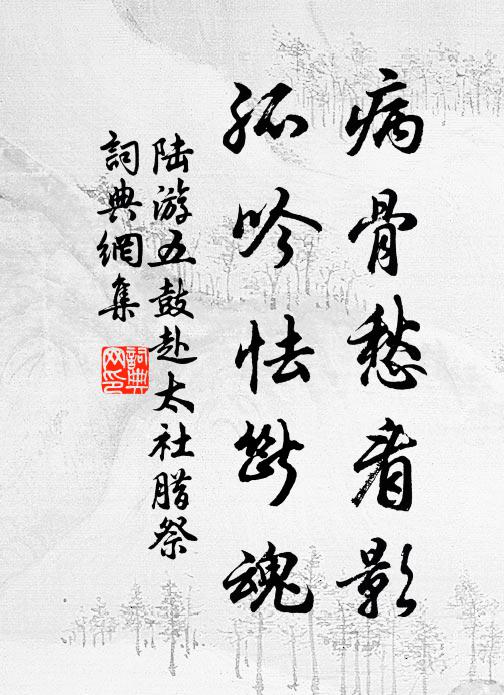 病骨愁看影
孤吟怯斷魂
陆游五鼓赴太社腊祭
詞典網集
詞典网印